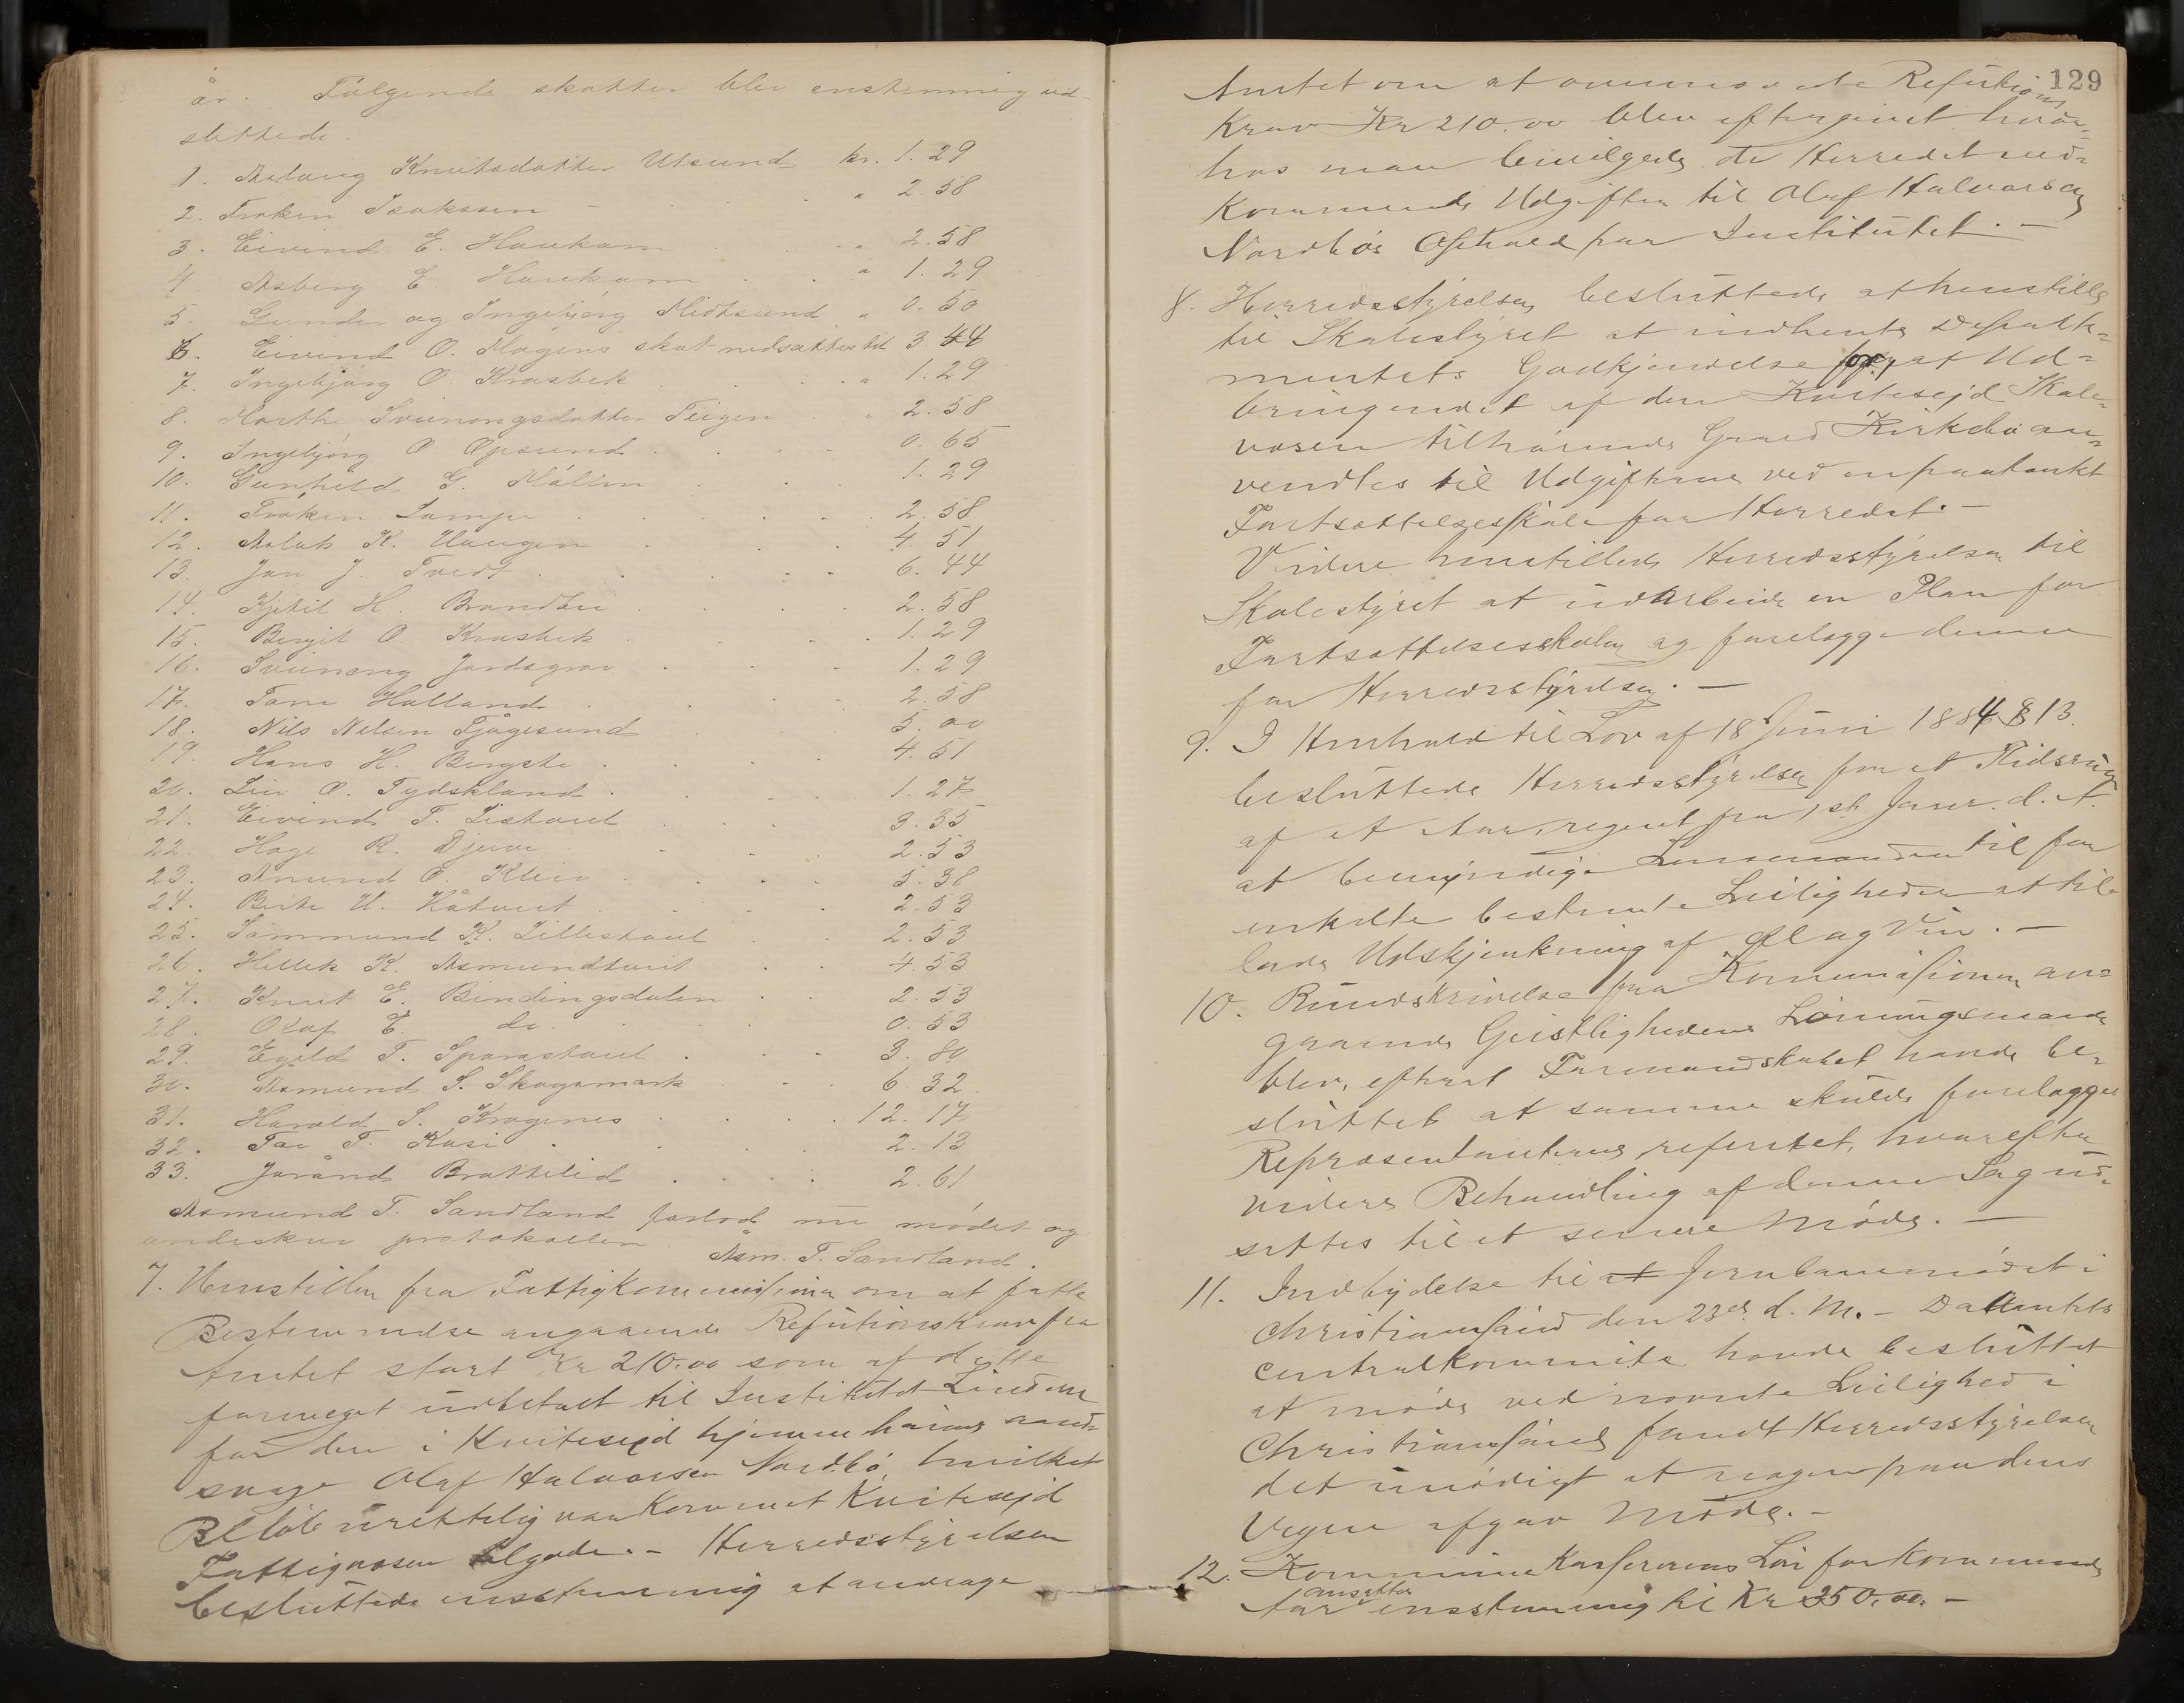 år. Følgende skatter blev enstemmig ud-
slettede.
1. Aslaug Knutsdatter Utsund kr. 1.29
2. Frøken Isaksen - . . . " 2.58
3. Eivind E. Haukom . . " 2.58
4 Asberg E. Haukom . . " 1.29
5. Gunder og Ingebjørg Midtsund " 0.50
6. Eivind O. Mogens skat nedsattes til 3.44
7. Ingebjørg O. Krosbek . . . " 1.29
8. Marthe Sveinungsdatter Teigen " 2.58
9. Ingebjørg O. Opsund . . . 0.65
10. Gunhild G. Møllen . . . 1.29
11. Frøken Lampe . . . 2.58
12. Aslak K. Haugen . . . 4.51
13. Jon J. Tvedt . . . 6.44
14. Kjetil H. Brandbu . . . 2.58
15. Bergit O. Krosbek . . . 1.29
16. Sveinung Jordsgrav . . . 1.29
17. Tone Holland . . . 2.58
18. Nils Nelsen Fjågesund . . 5.00
19. Hans H. Bergste . . . 4.51
20. Liv O. Tydskland . . . 1.27
21. Eivind T. Listaul . . . 3.35
22. Hage R. Djuve . . . 2.53
23. Amund O. Kleiv . . . 5.38
24. Birte H. Håtveit . . . 2.53
25. Sammund K. Lillestaul . . 2.53
26. Hellek K. Asmundtveit . . 4.53
27. Knut E. Bindingsdalen . . 2.53
28. Olaf E. do. . . . 0.53
29. Egild T. Sparastaul . . . 3.80
30. Asmund S. Skogsmark . . 6.32
31. Harald S. Krogenes . . . 12.17
32. Tor T. Kasi . . . 2.13
33. Jorånd Brattelid . . . 2.61
Asmund T. Sandland forlod nu mødet og
underskrev protokollen Asm. T. Sandland.
7. Henstillen fra Fattigkommissionen om at fatte
Bestemmelse angaaende Refutionskrav fra
Amtet stort Kr 210.00 som af dette
formeget udbetalt til Institutet Lindern
for den i Kvitesejd hjemmehørende aand-
svage Olaf Halvorsen Nordbø, hvilket
Beløb urettelig var kommet Kvitesejd
Fattigvæsen tilgode. - Herredsstyrelsen
besluttede enstemmig at andrage
129
Amtet om at ovennævnte Refutions
Krav Kr 210.00 blev eftergivet hvor-
hos man bevilgede de Herredet ved-
kommende Udgifter til Olaf Halvorsen
Nordbøs Ophold paa Institutet. -
8. Herredsstyrelsen besluttede at henstille
til Skolestyret at indhente Departe-
mentets Godkjendelse for, at Ud-
bringendet af den Kvitesejd Skole-
væsen tilhørende Gaard Kirkebø an-
vendtes til Udgifterne ved en paatænkt
Fortsættelsesskole for Herredet. -
Videre henstillede Herredsstyrelsen til
Skolestyret at udarbeide en Plan for
Fortsættelsesskolen og forelægge denne
for Herredsstyrelsen. -
9. I Henhold til Lov af 18 Juni 1884 § 13.
besluttede Herredsstyrelsen for et Tidsrum
af et Aar, regnet fra 1st Janr. d. A.
at bemyndige Lensmanden til for
enkelte bestemte Leiligheder at til-
lade Udskjenkning af Øl og Vin. -
10. Rundskrivelse fra Kommissionen an-
gaaende Geistlighedens Lønningsmaade
blev, efterat Formandskabet havde be-
sluttet at samme skulde forelægges
Repræsentanterne, referitet, hvorefter
videre Behandling af denne Sag ud-
sattes til et senere Møde. -
11. Indbydelse til at Jernbanemødet i
Christiansand den 23de d. M. - Da Amtets
Centralkommite havde besluttet
at møde ved nævnte Leilighed i
Christiansand fandt Herredsstyrelsen
det unødigt at nogen paa dens
Vegne afgav Møde. -
12. Kommunekassererens Løn for Kommende
Aar ansattes enstemmig til Kr 350.00. -